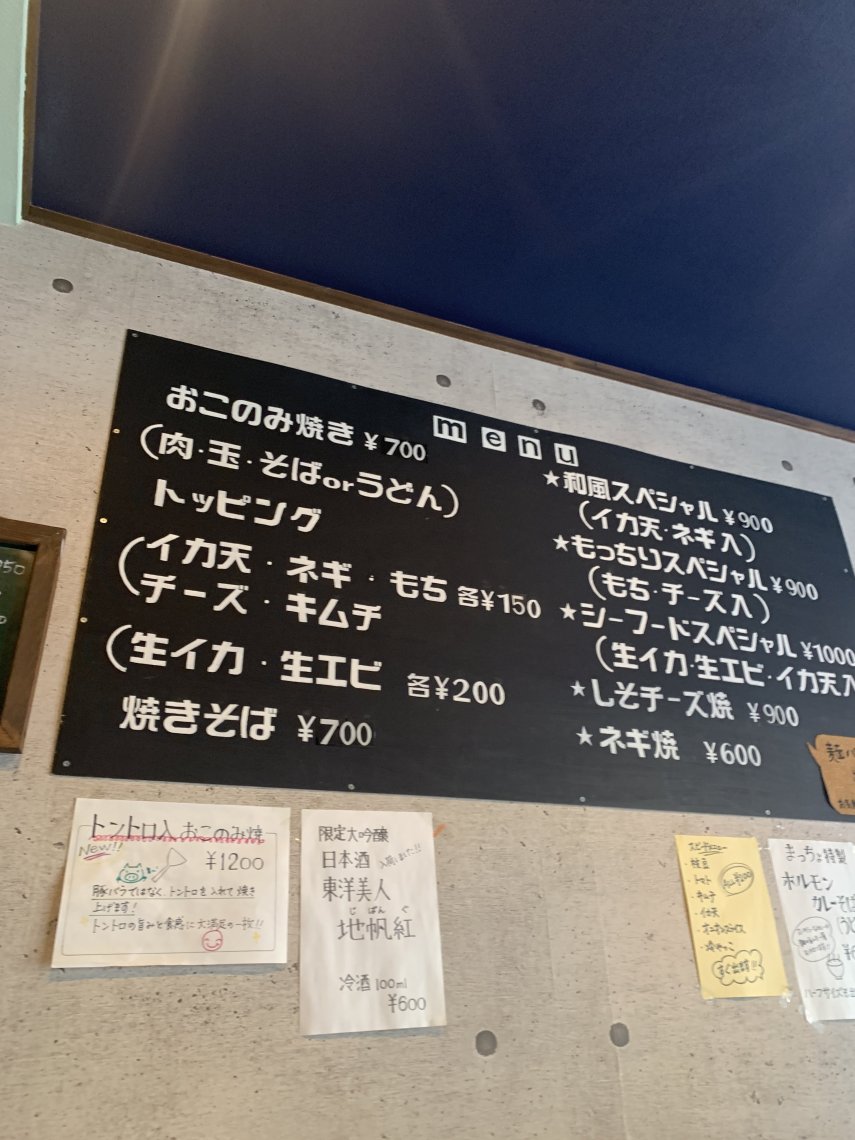 menu
おこのみ焼き ¥700
(肉・玉・そばorうどん)
トッピング
(イカ天・ネギ・もち 各¥150
チーズ・キムチ
(生イカ・生エビ 各¥200
焼きそば ¥700
★和風スペシャル ¥900
(イカ天・ネギ入)
★もっちりスペシャル ¥900
(もち・チーズ入)
★シーフードスペシャル ¥1000
(生イカ・生エビ・イカ天入
★しそチーズ焼 ¥900
★ネギ焼 ¥600
トントロ入 おこのみ焼
New!!
¥1200
豚バラではなく、トントロを入れて焼き
上げます!
トントロの旨みと食感に大満足の一枚!!
限定大吟醸
日本酒 入荷いました!!
東洋美人
じぱんぐ
地帆紅
冷酒 100ml
¥600
スピードメニュー
・枝豆
・トマト
・キムチ
・イカ天
・オニオンスライス
すぐ出ます!!
まっちょ特製
ホルモン
カレーそば